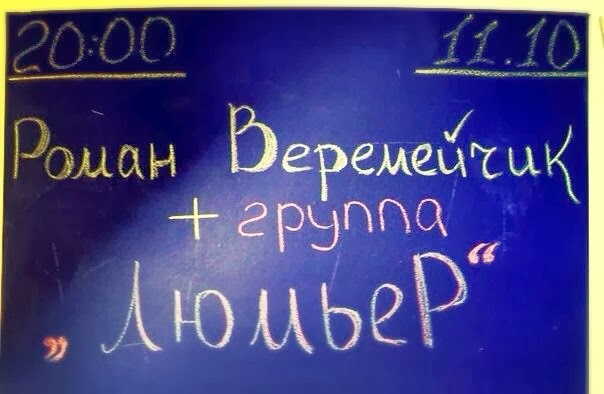 20:00 11.10
Роман Веремейчик
+ группа
„ЛюмьеР“